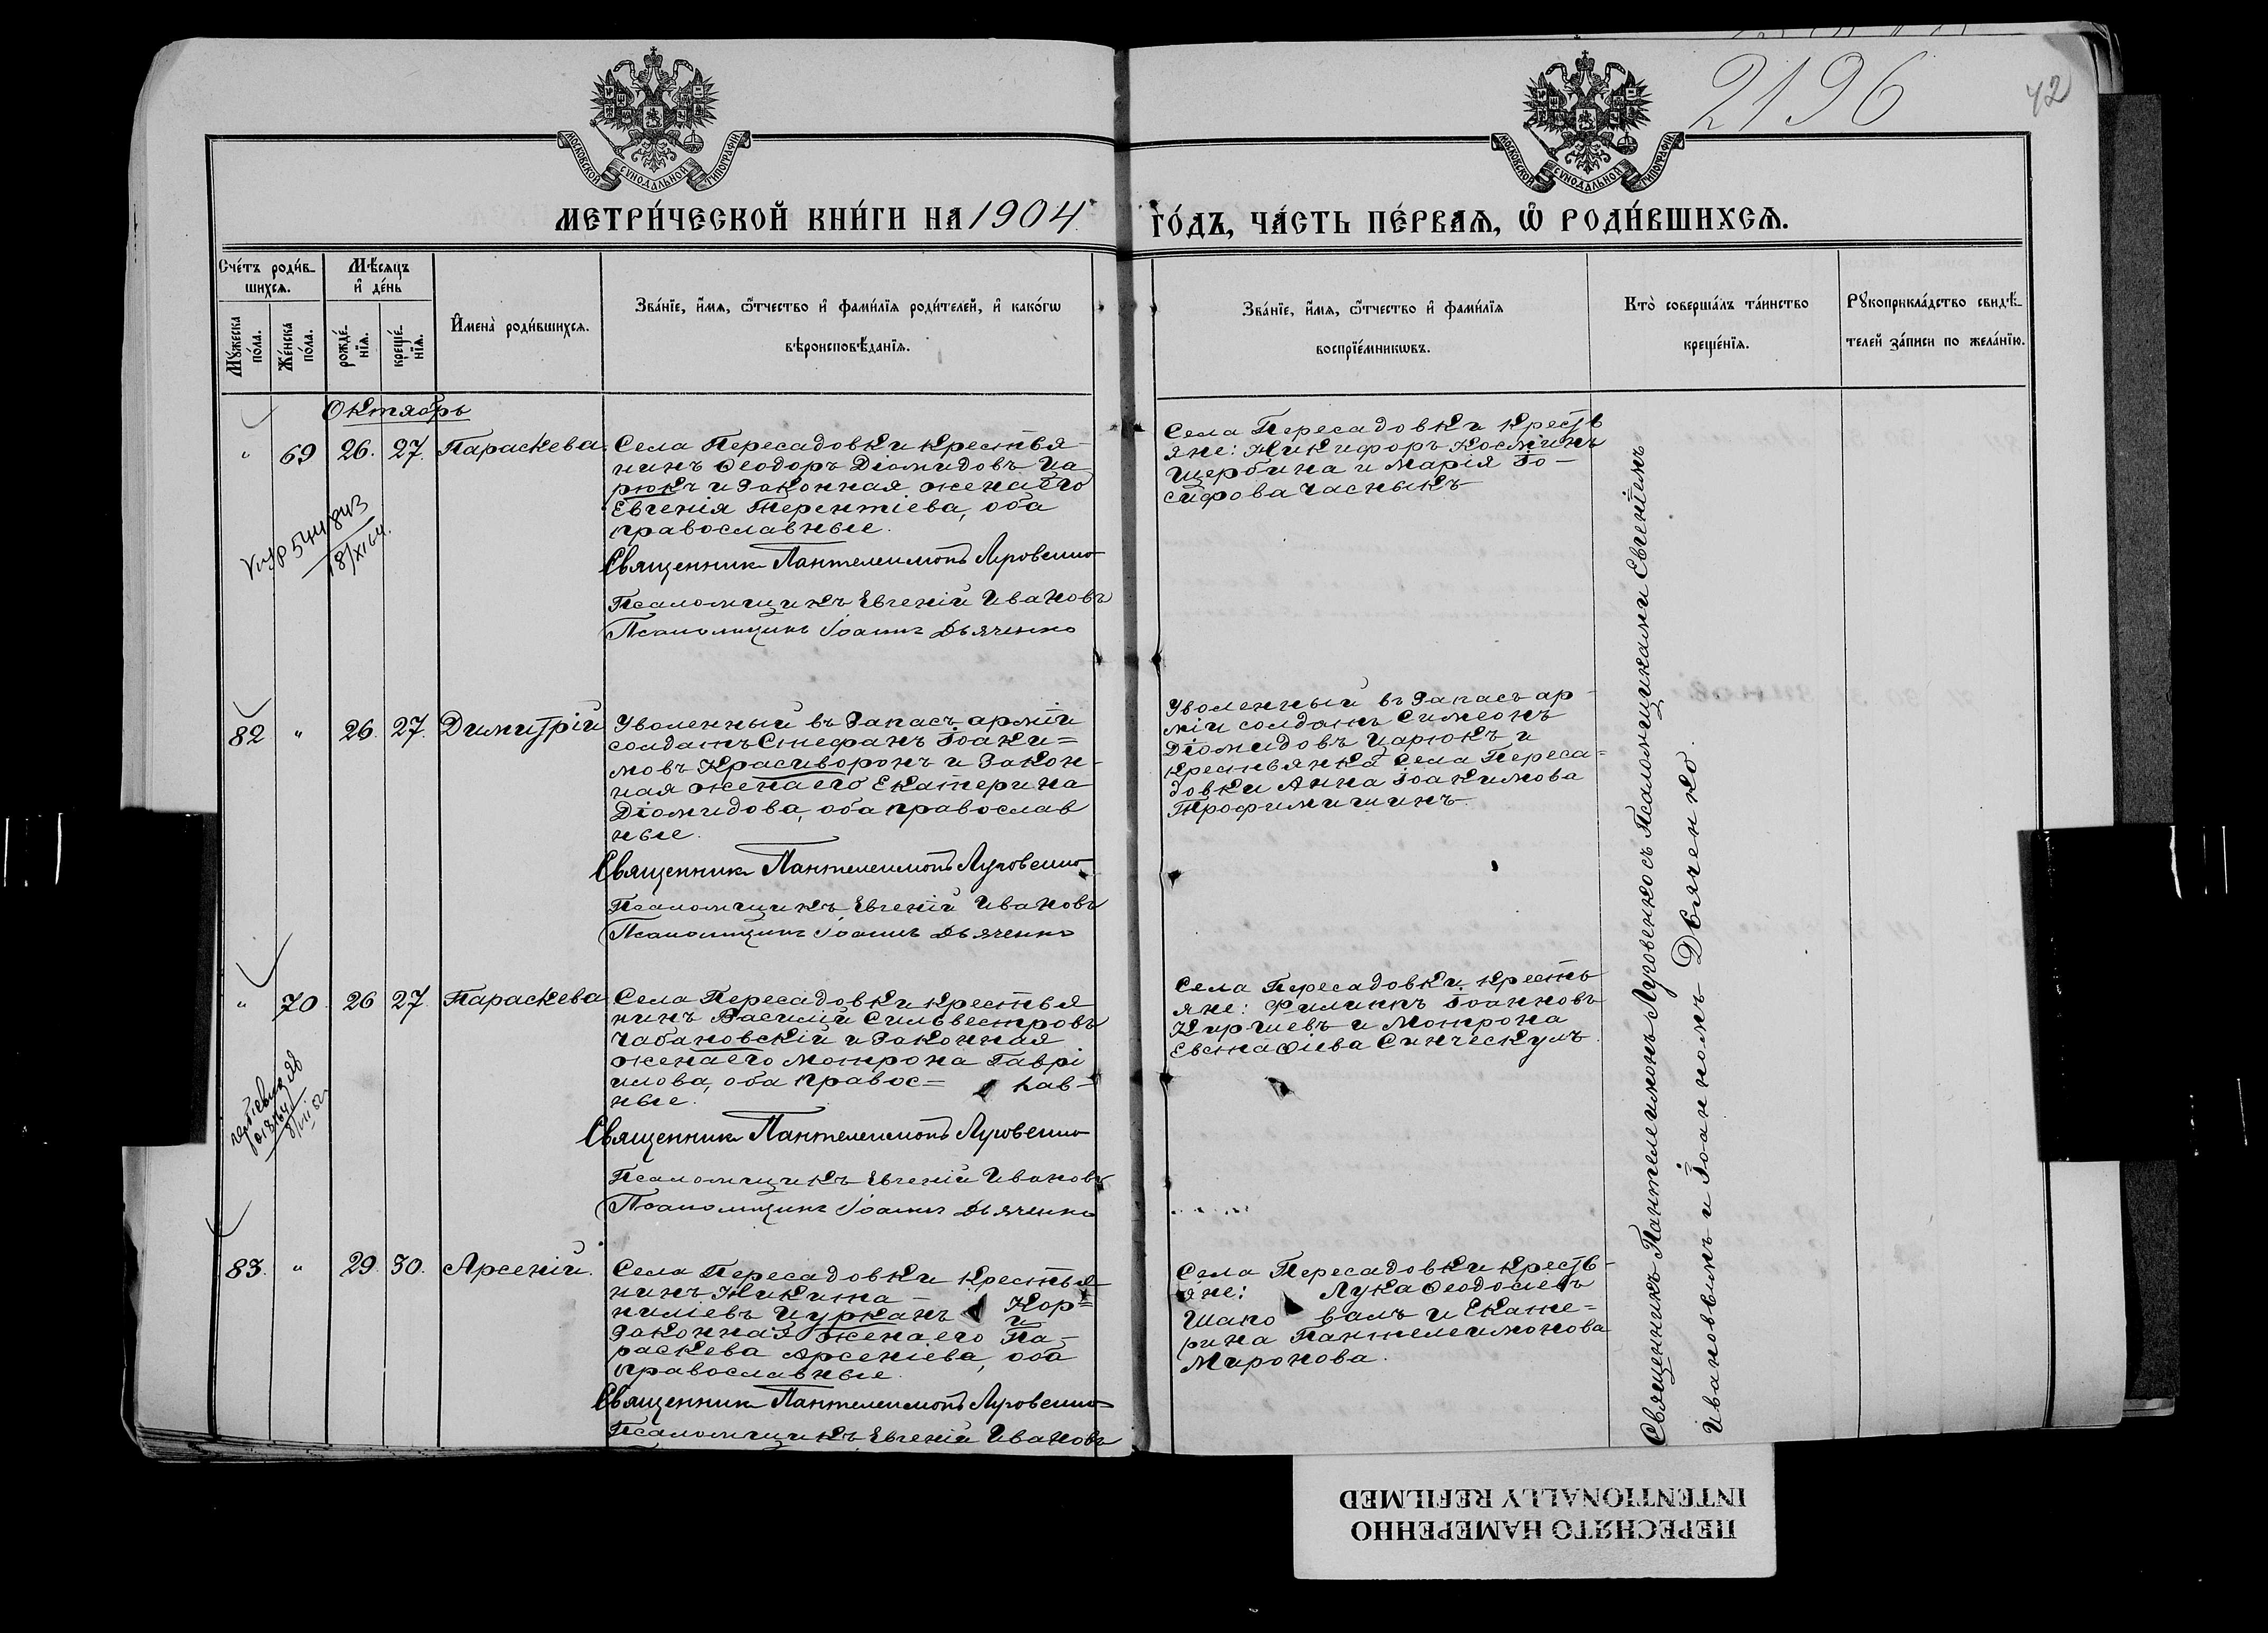 2196
42
МОСКОВСКОЙ СУНОДАЛЬНОЙ ТИПОГРАФІИ
МОСКОВСКОЙ СУНОДАЛЬНОЙ ТИПОГРАФІИ
МЕТРИ́ЧЕСКОЙ КНИ́ГИ НА 1904 ГО́ДЪ, ЧА́СТЬ ПЕ́РВАѦ, Ѽ РОДИ́ВШИХСѦ.
Сче́тъ роди́в-
шихсѧ.
Мꙋ́жеска
по́ла.
Же́нска
по́ла.
Мѣ́сѧцъ
и҆ де́нь
рожде́-
нїѧ.
креще́-
нїѧ.
И҆мена̀ роди́вшихсѧ.
Зва́нїе, и҆́мѧ, ѻ҆́тчество и҆ фами́лїѧ роди́телей, и҆ како́гѡ
вѣроисповѣ́данїѧ.
Зва́нїе, и҆́мѧ, ѻ҆́тчество и҆ фами́лїѧ
воспрїе́мникѡвъ.
Кто̀ соверша́лъ та́инство
креще́нїѧ.
Рꙋкоприкла́дство свидѣ́-
телей за́писи по жела́нїю.
Октябрь
" 69 26. 27. Параскева.
Села Пересадовки крестья
нинъ Ѳеодоръ Діомидовъ Ца
рюкъ и законная жена его
Евгенія Терентіева, оба
православные.
Священникъ Пантелеимонъ Луговенко
Псаломщикъ Евгеній Ивановъ
Псаломщикъ Іоаннъ Дьяченко
Села Пересадовки кресть
яне: Никифоръ Косминъ
Щербина и Марія Іо-
сифова Часныкъ
544843
18/XI 64.
82 " 26. 27. Димитрій
Уволенный въ запасъ арміи
солдатъ Стефанъ Іоаки=
мовъ Красиворонъ и закон-
ная жена его Екатерина
Діомидова, оба православ
ные.
Священникъ Пантелеимонъ Луговенко
Псаломщикъ Евгеній Ивановъ
Псаломщикъ Іоаннъ Дьяченко
Уволенный въ запасъ ар-
міи солдатъ Симеонъ
Діомидовъ Царюкъ и
крестьянка села Переса=
довки Анна Іоакимова
Трофимишинъ
" 70. 26 27. Параскева
Села Пересадовки крестья
нинъ Василій Сильвестровъ
Чабановскій и законная
жена его Мотрона Гаврі
илова, оба правос= лав-
ные.
Священникъ Пантелеимонъ Луговенко
Псаломщикъ Евгеній Ивановъ
Псаломщикъ Іоаннъ Дьяченко
Села Пересадовки кресть
яне: Филиппъ Іоанновъ
Киричевъ и Мотрона
Евстаѳіева
83. " 29. 30. Арсеній.
Села Пересадовки крестья
нинъ Никита Кор=
ниліевъ Цурканъ и
законная жена его Па-
раскева Арсеніева, оба
православные.
Священникъ Пантелеимонъ Луговенко
Псаломщикъ Евгеній Ивановъ
Села Пересадовки кресть-
яне: Лука Ѳеодосіевъ
Шапо валъ и Екате=
рина Пантелеимонова
Миронова.
Священникъ Пантелеимонъ Луговенко съ Псаломщиками Евгеніемъ
Ивановымъ и Іоанномъ Дьяченко.
ПЕРЕСНЯТО НАМЕРЕННО
INTENTIONALLY REFILMED